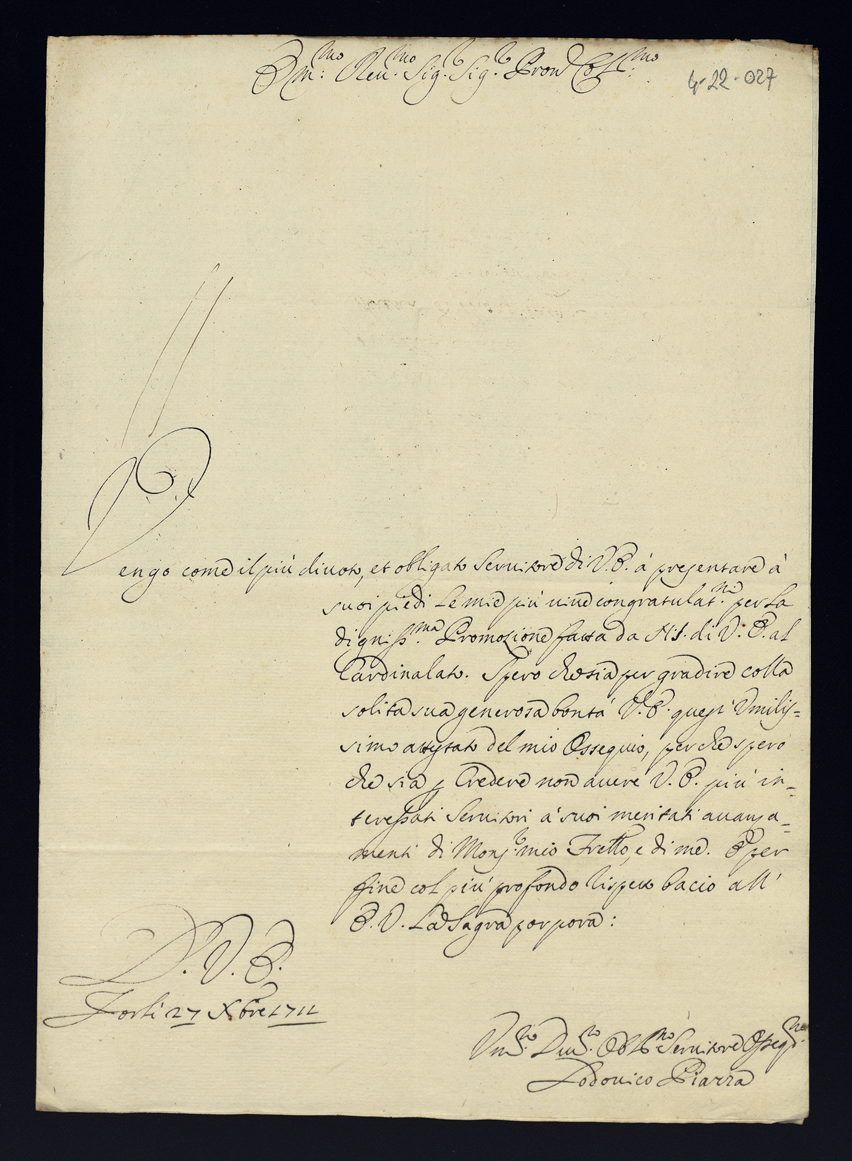 Em:mo Reu:mo Sig:r Sig:r Pron Col:mo
4-22-027
Vengo come il più diuoto, et obligato Seruitore di V.E. à presentare à
suoi piedi le mie più uiue congratulat:ni per la
digniss:ma Promozione fatta da N.S. di V.E. al
Cardinalato. Spero che sia per gradire colla
solita sua generosa bontà V.E. questi Vmilis=
simo attestato del mio Ossequio, perche spero
che sia p Credere non auere V.E. più in=
teressati Seruitori a' suoi meritati auanza=
menti di Mons:r mio Fretto, e di me. E per
fine col più profondo rispetto bacio all'
E.V. La Sagra porpora:
D.V.E.
Forlì 27 Xbre 1711
Vm:mo Diu:mo Obb:mo Seruitore Osseq:mo
Lodouico Piazza